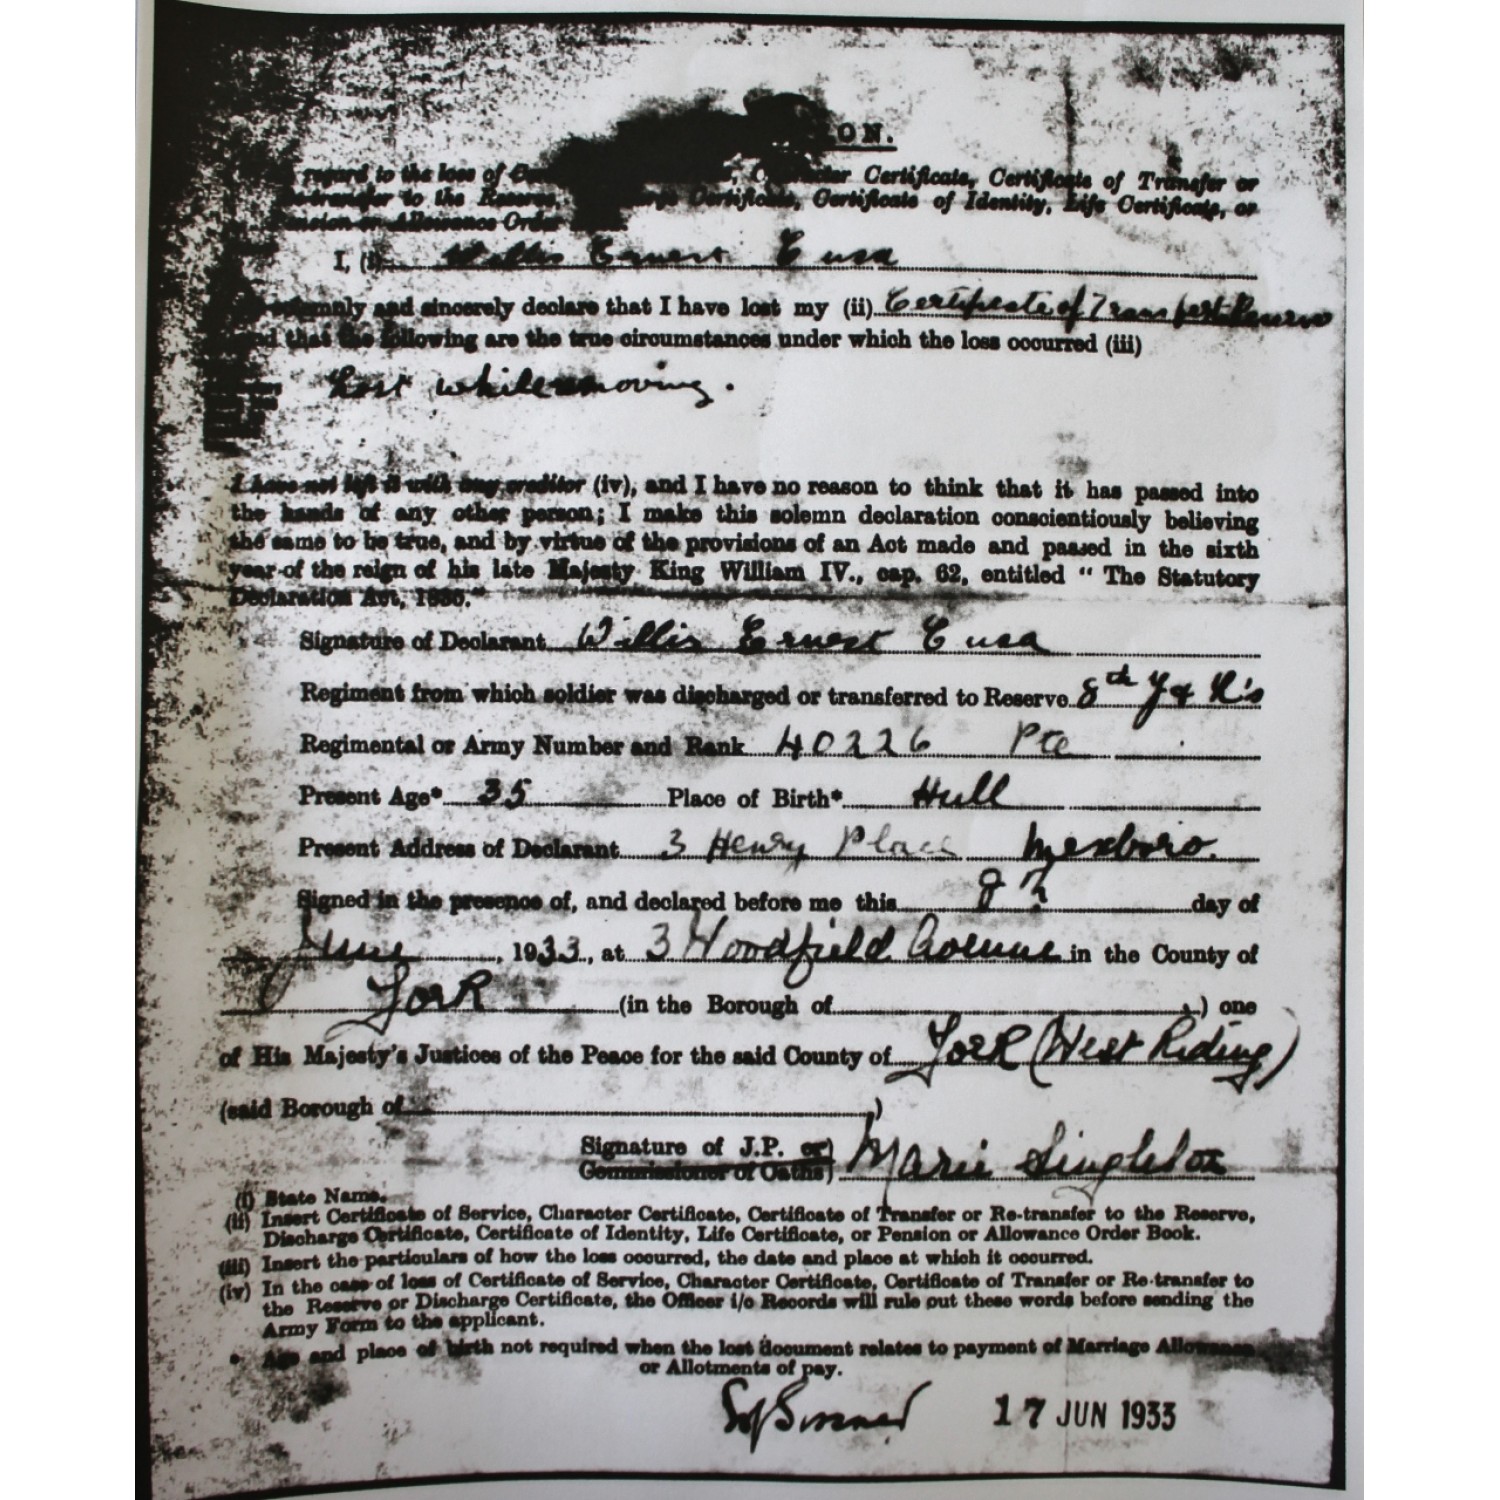 ON.
regard to the loss of Character Certificate, Certificate of Transfer or
Re-transfer to the Reserve, Certificate, Certificate of Identity, Life Certificate, or
Pension or Allowance Order
I, (i) Willis Ernest Cusa
solemnly and sincerely declare that I have lost my (ii) Certificate of Transfer to Reserve
and that the following are the true circumstances under which the loss occurred (iii)
Lost while removing.
I have not left it with any creditor (iv), and I have no reason to think that it has passed into
the hands of any other person; I make this solemn declaration conscientiously believing
the same to be true, and by virtue of the provisions of an Act made and passed in the sixth
year of the reign of his late Majesty King William IV., cap. 62, entitled " The Statutory
Declaration Act, 1835."
Signature of Declarant Willis Ernest Cusa
Regiment from which soldier was discharged or transferred to Reserve 8th Y & L's
Regimental or Army Number and Rank 40226 Pte
Present Age* 35 Place of Birth* Hull
Present Address of Declarant 3 Henry Place Mexboro.
Signed in the presence of, and declared before me this 9th day of
June, 1933, at 3 Woodfield Avenue in the County of
York (in the Borough of ) one
of His Majesty's Justices of the Peace for the said County of York (West Riding)
(said Borough of )
Signature of J.P. or)
Commissioner of Oaths) Marie Singleton
(i) State Name.
(ii) Insert Certificate of Service, Character Certificate, Certificate of Transfer or Re-transfer to the Reserve,
Discharge Certificate, Certificate of Identity, Life Certificate, or Pension or Allowance Order Book.
(iii) Insert the particulars of how the loss occurred, the date and place at which it occurred.
(iv) In the case of loss of Certificate of Service, Character Certificate, Certificate of Transfer or Re-transfer to
the Reserve or Discharge Certificate, the Officer i/c Records will rule out these words before sending the
Army Form to the applicant.
* Age and place of birth not required when the lost document relates to payment of Marriage Allowance
or Allotments of pay.
17 JUN 1933